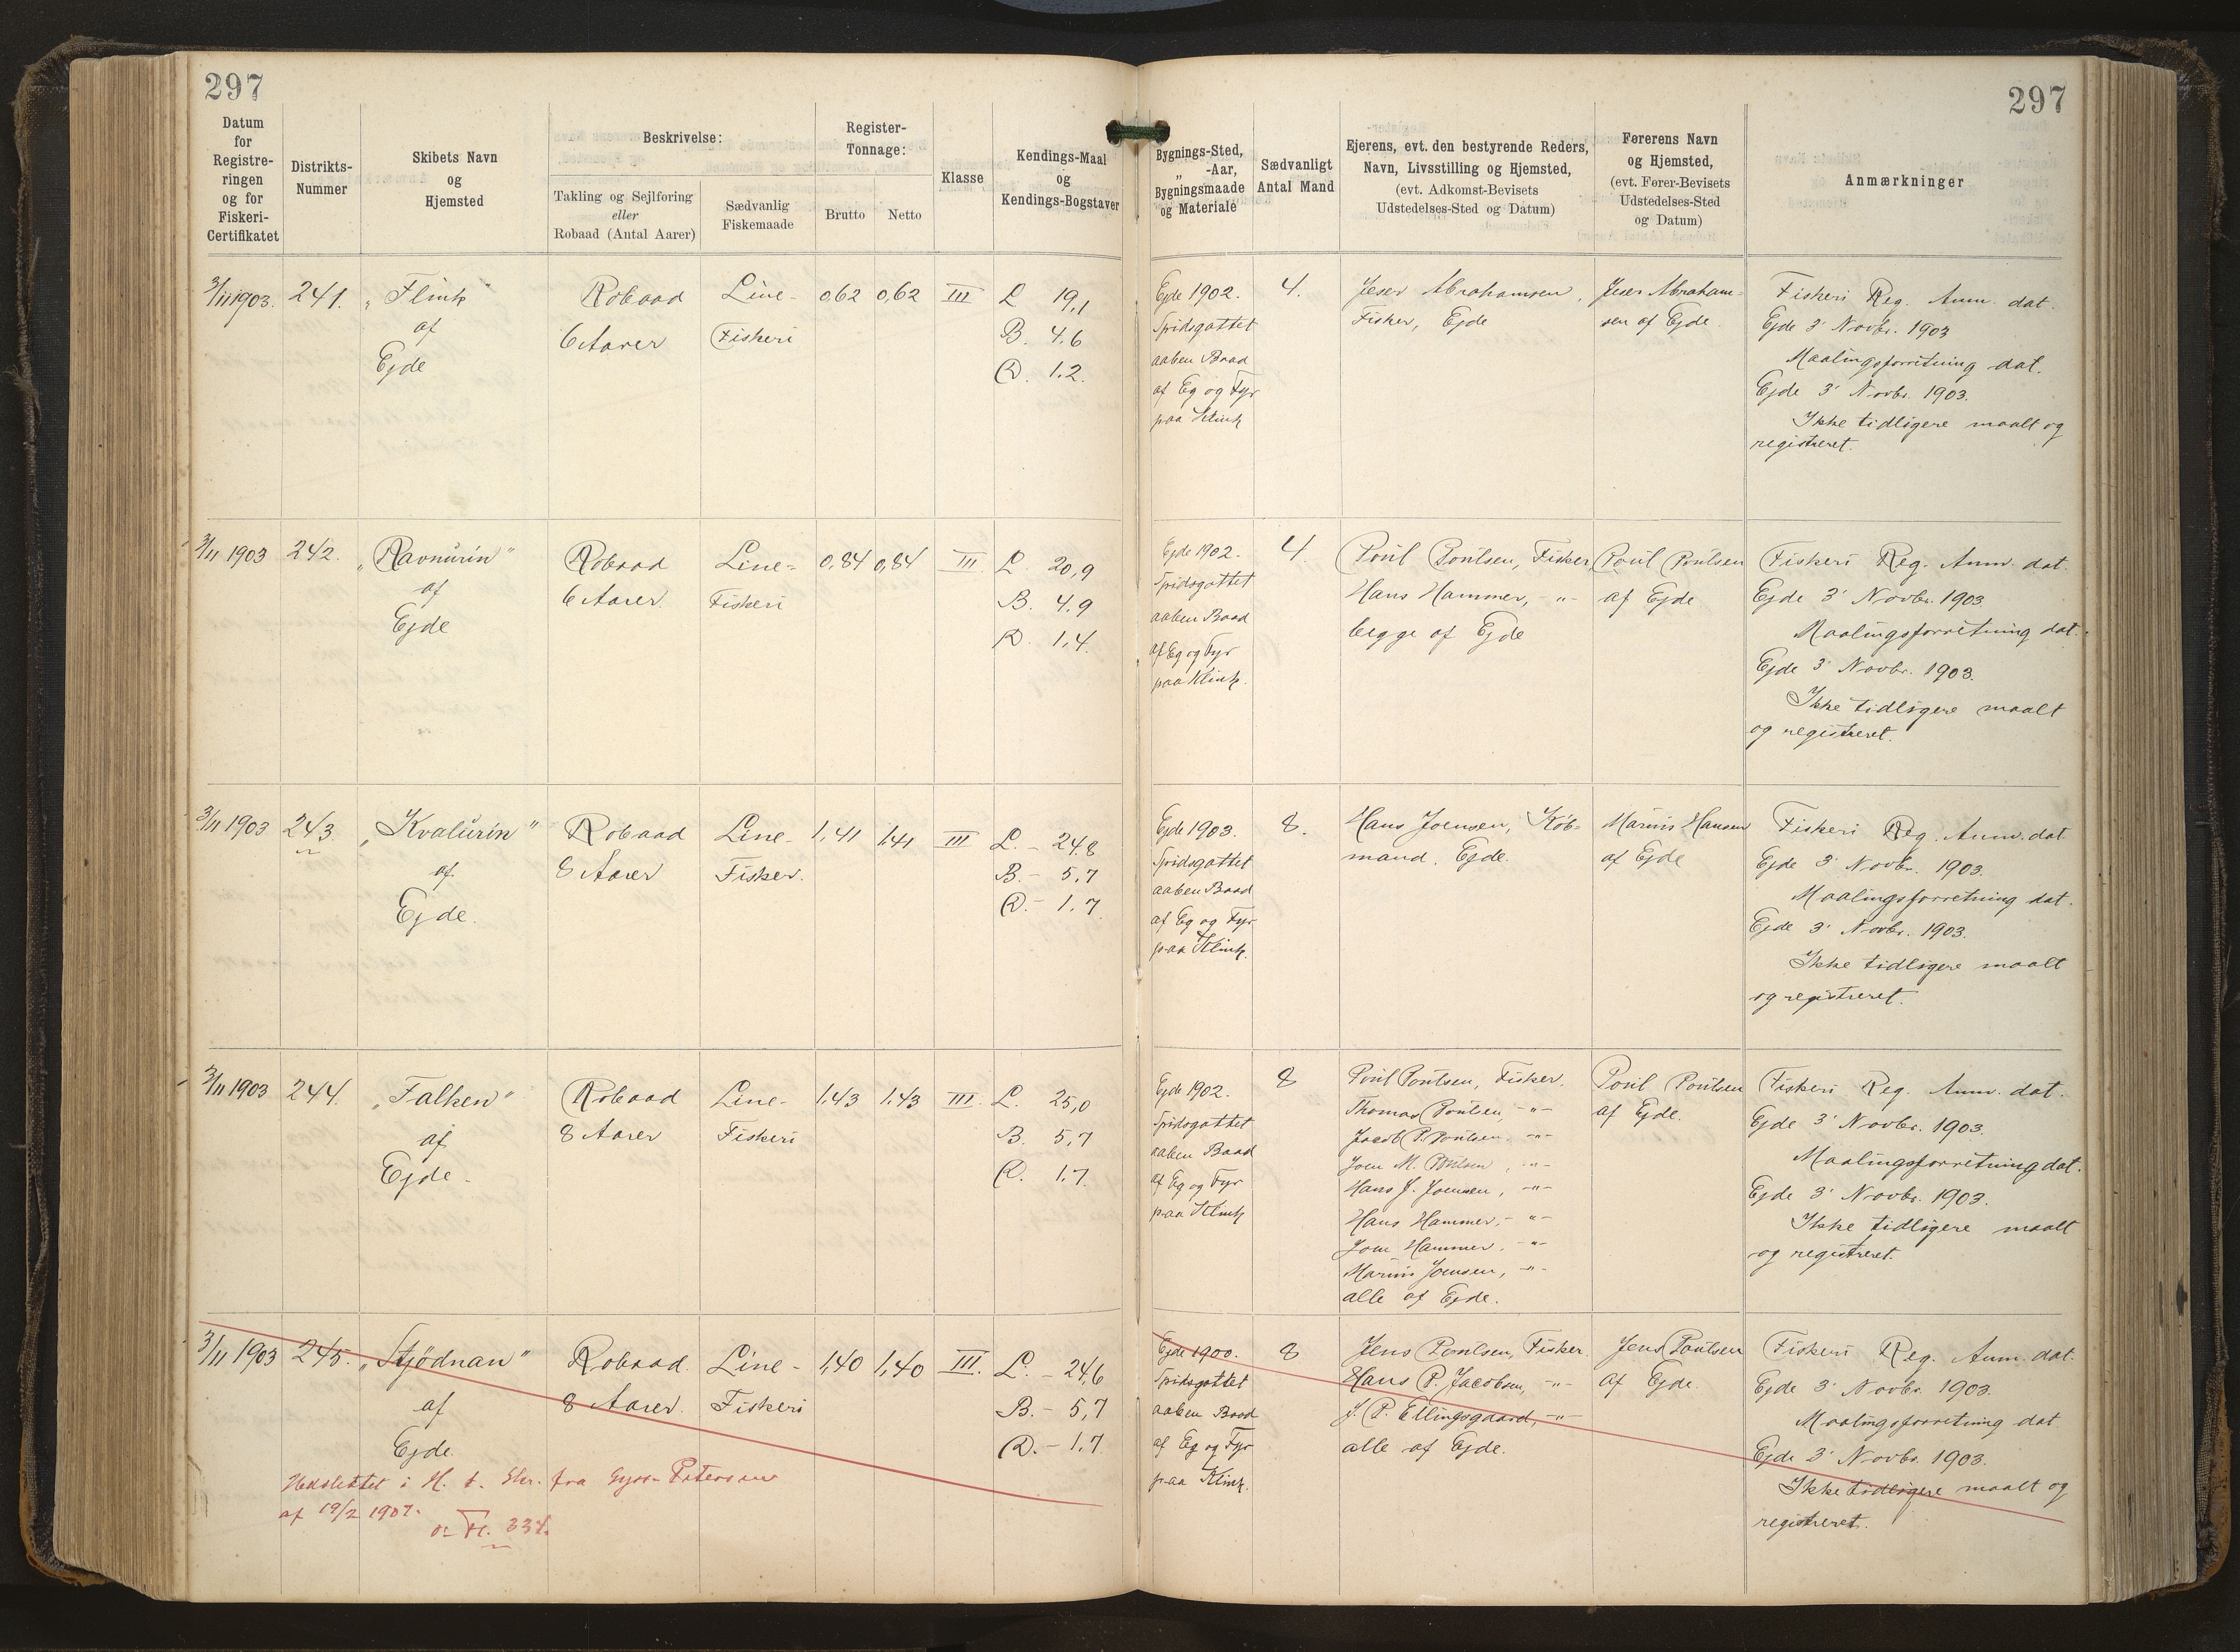 297
297
Datum
for
Registre-
ringen
og for
Fiskeri-
Certifikatet
Distrikts-
Nummer
Skibets Navn
og
Hjemsted
Beskrivelse:
Takling og Sejlføring
eller
Robaad (Antal Aarer)
Sædvanlig
Fiskemaade
Register-
Tonnage:
Brutto
Netto
Klasse
Kendings-Maal
og
Kendings-Bogstaver
Bygnings-Sted,
„ -Aar,
Bygningsmaade
og Materiale
Sædvanligt
Antal Mand
Ejerens, evt. den bestyrende Reders,
Navn, Livsstilling og Hjemsted,
(evt. Adkomst-Bevisets
Udstedelses-Sted og Datum)
Førerens Navn
og Hjemsted,
(evt. Fører-Bevisets
Udstedelses-Sted
og Datum)
Anmærkninger
3/11 1903.
241.
„Flink"
af
Ejde
Robaad
6 Aarer
Line-
Fiskeri
0,62
0,62
III
L 19,1
B. 4.6
D. 1.2.
Ejde 1902.
Spidsgattet
aaben Baad
af Eg og Fyr
paa Klink
4.
Abrahamsen,
Fisker, Ejde
Abraham-
sen af Ejde.
Fiskeri Reg. Anm. dat.
Ejde 3' Novbr. 1903
Maalingsforretning dat.
Ejde 3' Novbr. 1903.
Ikke tidligere maalt og
registreret.
3/11 1903
242.
„Ravnurin"
af
Ejde
Robaad
6 Aarer.
Line-
Fiskeri
0,84
0,84
III
L. 20,9
B. 4.9
D. 1,4.
Ejde 1902.
Spidsgattet
aaben Baad
af Eg og Fyr
paa Klink.
4.
Poul Poulsen, Fisker,
Hans Hammer, -"-
begge af Ejde
Poul Poulsen
af Ejde
Fiskeri Reg. Anm. dat.
Ejde 3' Novbr. 1903.
Maalingsforretning dat.
Ejde 3' Novbr. 1903.
Ikke tidligere maalt
og registreret.
3/11 1903
243.
„Kvalurin"
af
Ejde.
Robaad
8 Aarer
Line-
Fisker.
1,41
1,41
III
L. - 24.8
B. - 5,7
D. - 1.7.
Ejde 1903.
Spidsgattet
aaben Baad
af Eg og Fyr
paa Klink.
8.
Hans Joensen, Køb-
mand. Ejde.
Marius Hansen
af Ejde
Fiskeri Reg. Anm. dat
Ejde 3' Novbr. 1903.
Maalingsforretning dat.
Ejde 3' Novbr. 1903.
Ikke tidligere maalt
og registreret.
3/11 1903
244.
„Falken"
af
Ejde.
Robaad
8 Aarer
Line-
Fiskeri
1,43
1,43
III.
L. 25,0
B. 5,7
D. 1.7.
Ejde 1902.
Spidsgattet
aaben Baad
af Eg og Fyr
paa Klink
8
Poul Poulsen, Fisker.
Thomas Poulsen, -"-
Jacob P. Poulsen, -"-
Joen M. Poulsen, -"-
Hans J. Joensen, -"-
Hans Hammer, -"-
Joen Hammer. -"-
Marius Joensen, -"-
alle af Ejde.
Poul Poulsen
af Ejde.
Fiskeri Reg. Anm. dat.
Ejde 3' Novbr. 1903.
Maalingsforretning dat.
Ejde 3' Novbr. 1903.
Ikke tidligere maalt
og registreret.
3/11 1903
245.
„Stjödnan"
af
Ejde.
Robaad.
8 Aarer.
Line-
Fiskeri
1,40
1,40
III.
L. - 24,6
B. - 5,7
D. - 1.7
Ejde 1900.
Spidsgattet
aaben Baad
af Eg og Fyr
paa Klink.
8
Jens Poulsen, Fisker.
Hans P. Jacobsen, -"-
J. P. Ellingsgaard, -"-
alle af Ejde.
Jens Poulsen
af Ejde.
Fiskeri Reg. Anm. dat.
Ejde 3' Novbr. 1903.
Maalingsforretning dat
Ejde 3' Novbr. 1903.
Ikke tidligere maalt og
registreret.
i H. t. Skr. fra Petersen
af 19/2 1907.
334.